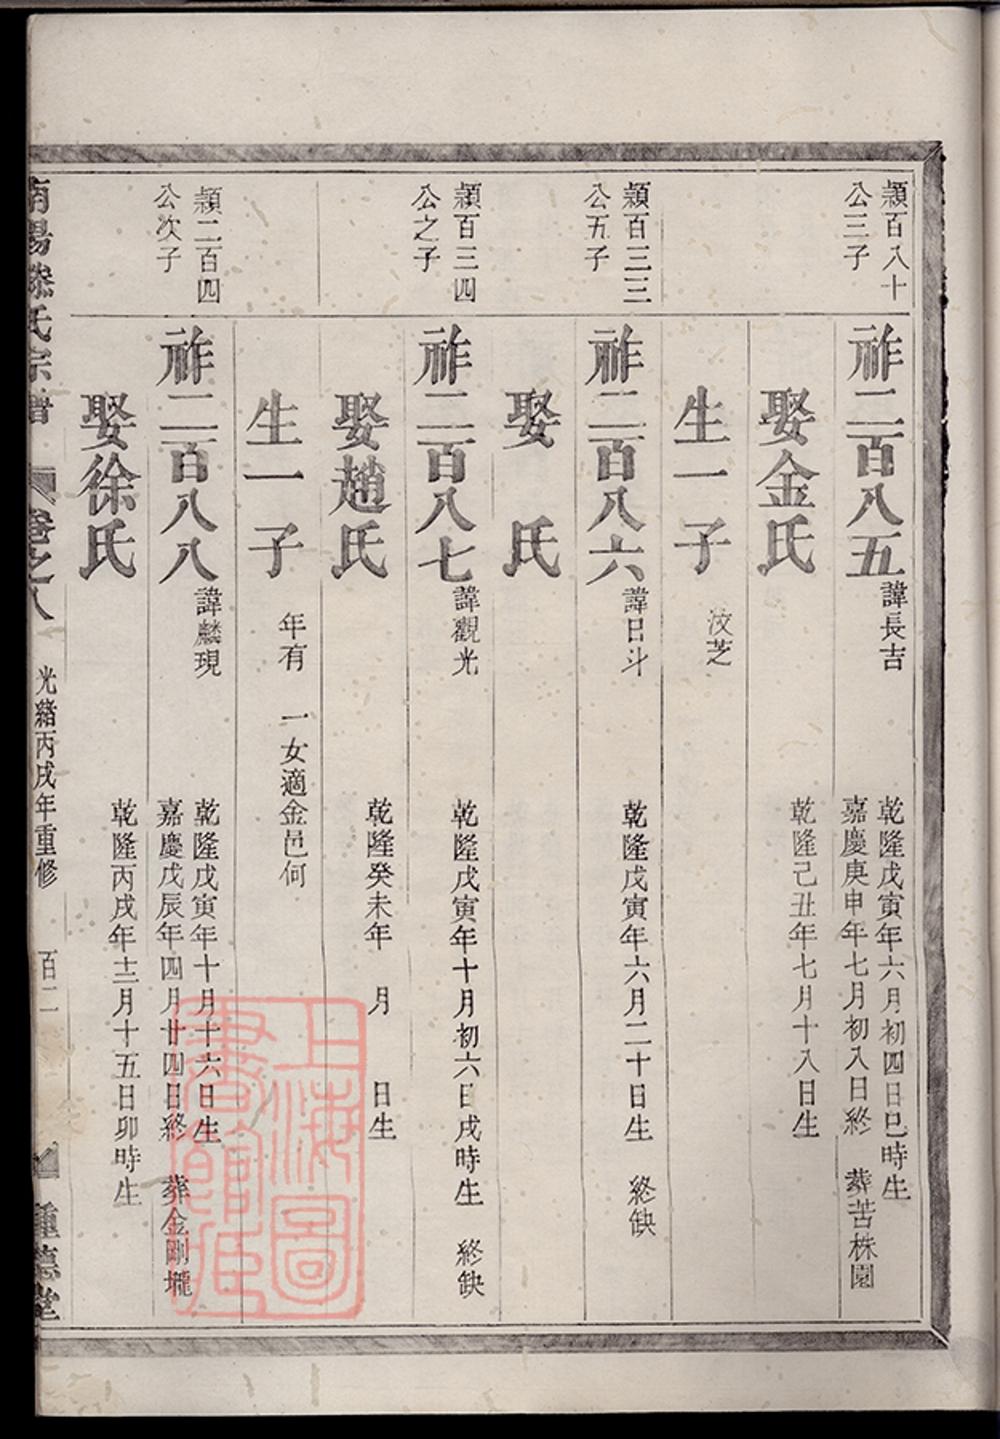 穎百八十
公三子
祚二百八五
諱長吉
乾隆戊寅年六月初四日巳時生
嘉慶庚申年七月初八日終　葬苦株園
娶金氏
乾隆己丑年七月十八日生
生一子
汶芝
穎百三三
公五子
祚二百八六
諱日斗
乾隆戊寅年六月二十日生　終缺
娶　氏
穎百三四
公之子
祚二百八七
諱觀光
乾隆戊寅年十月初六日戌時生　終缺
娶趙氏
乾隆癸未年　月　　日生
生一子
年有　一女適金邑何
穎二百四
公次子
祚二百八八
諱麟現
乾隆戊寅年十月十六日生
嘉慶戊辰年四月廿四日終　葬金剛壠
娶徐氏
乾隆丙戌年十二月十五日卯時生
南陽滕氏宗譜　卷之八　光緒丙戌年重修　百二　種德堂
上海圖書館藏